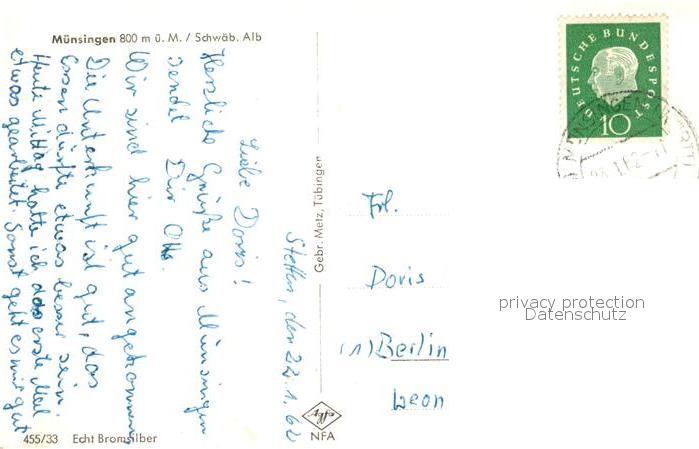 Münsingen 800 m ü. M. / Schwäb. Alb
Steffen, den 22.1.62
Liebe Doris!
Herzliche Grüße aus Münsingen
sendet Dir Otto.
Wir sind hier gut angekommen
Die Unterkunft ist gut, das
Essen dürfte etwas besser sein
Heute Mittag hatte ich das erste Mal
etwas gearbeitet. Sonst geht es mir gut
455/33 Echt Bromsilber
Gebr. Metz, Tübingen
Agfa
NFA
DEUTSCHE BUNDESPOST
10
Frl.
Doris
(1) Berlin
Leon
privacy protection
Datenschutz